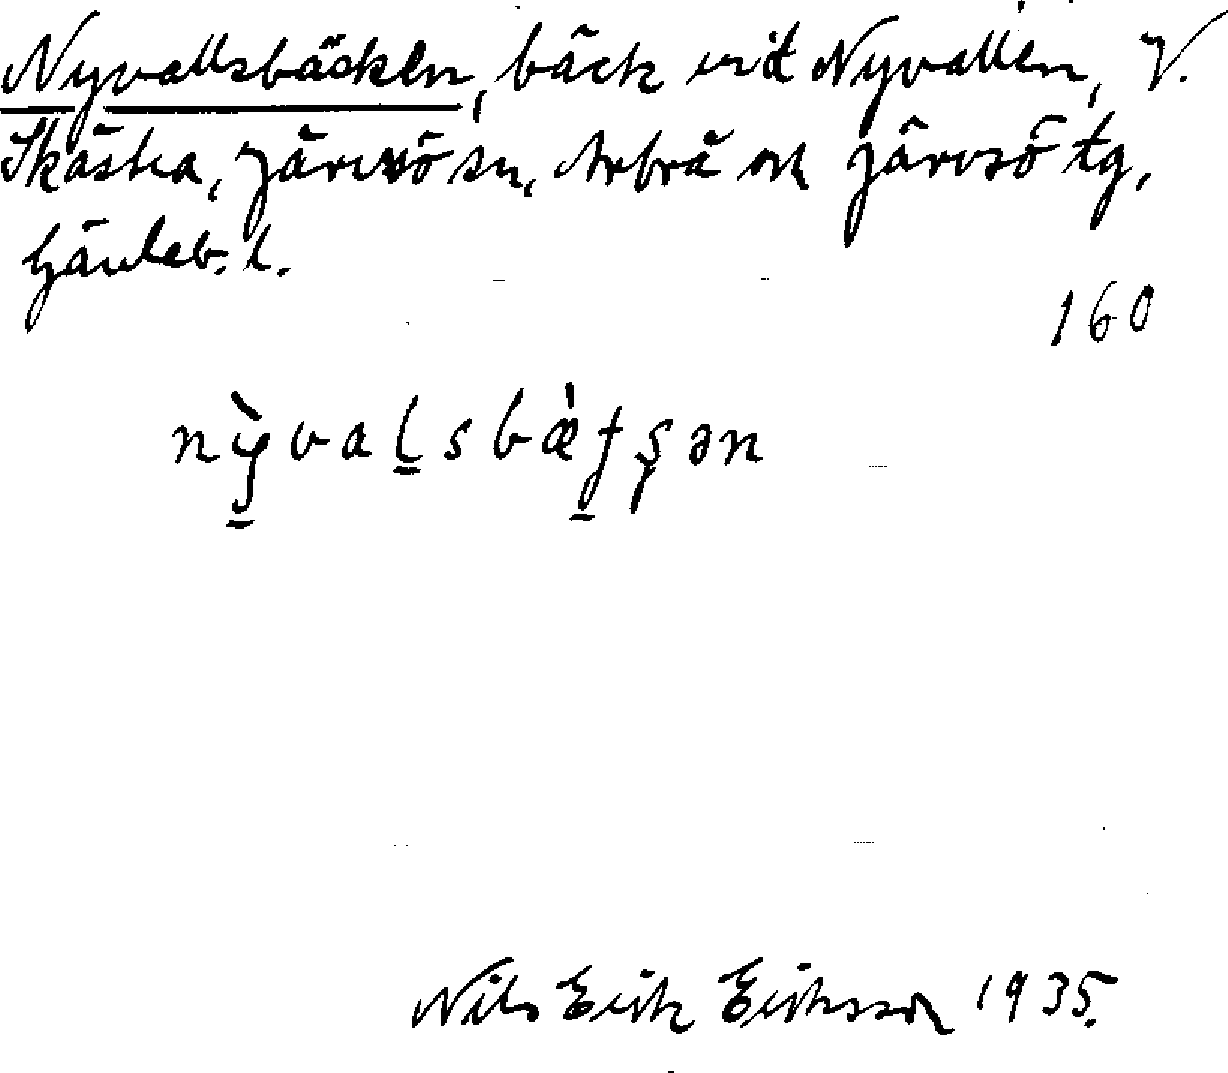 Nyvallsbäcken, bäck vid Nyvallen, V.
Skästra, Järvsö sn, Arbrå och Järvsö tg,
Gävleb. l.
160
nỳ̠val̠sbæ̀f̠ʂən
Nils Erik Eriksson 1935.